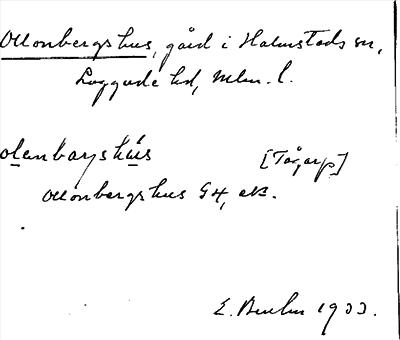 Ollonbergshus, gård i Halmstads sn,
Luggude hd, Mlm. l.
olenbaryshus [Tågarp]
Ollonbergshus GK, eB.
E. 1933.